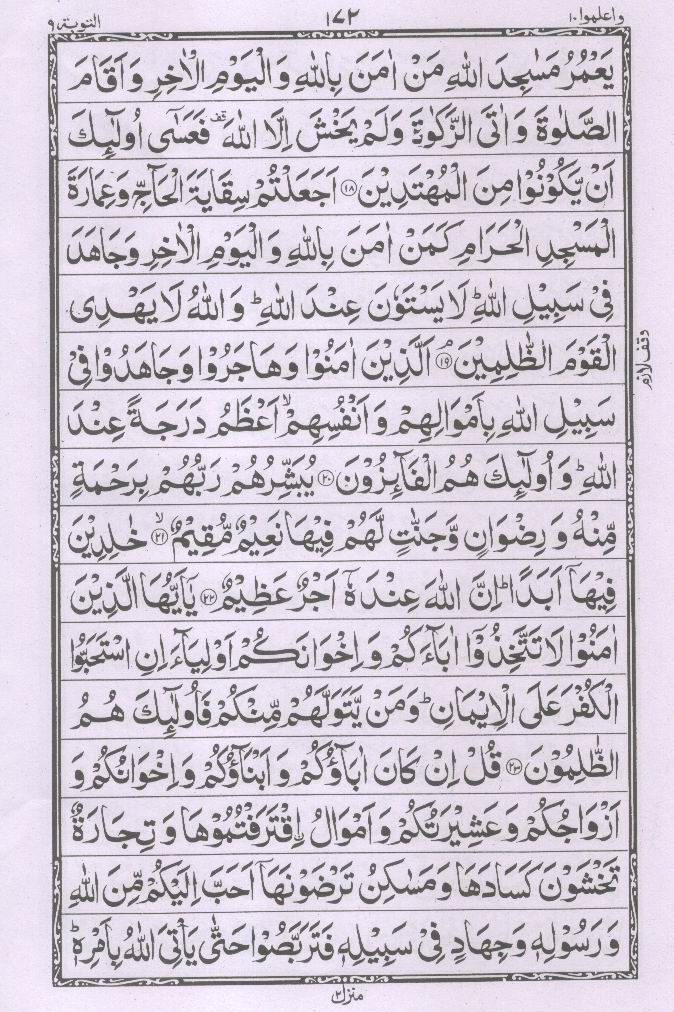 واعلموا ١٠
١٧٢
التوبة ٩
يَعْمُرُ مَسٰجِدَ اللّٰهِ مَنْ اٰمَنَ بِاللّٰهِ وَ الْيَوْمِ الْاٰخِرِ وَ اَقَامَ
الصَّلٰوةَ وَ اٰتَى الزَّكٰوةَ وَلَمْ يَخْشَ اِلَّا اللّٰهَ ۫ فَعَسٰۤى اُولٰٓئِكَ
اَنْ يَّكُوْنُوْا مِنَ الْمُهْتَدِيْنَ ۝۱۸ اَجَعَلْتُمْ سِقَايَةَ الْحَآجِّ وَعِمَارَةَ
الْمَسْجِدِ الْحَرَامِ كَمَنْ اٰمَنَ بِاللّٰهِ وَ الْيَوْمِ الْاٰخِرِ وَجَاهَدَ
فِيْ سَبِيْلِ اللّٰهِ ؕ لَا يَسْتَوٗنَ عِنْدَ اللّٰهِ ؕ وَ اللّٰهُ لَا يَهْدِى
الْقَوْمَ الظّٰلِمِيْنَ ۝۱۹ۘ اَلَّذِيْنَ اٰمَنُوْا وَهَاجَرُوْا وَجَاهَدُوْا فِيْ
سَبِيْلِ اللّٰهِ بِاَمْوَالِهِمْ وَ اَنْفُسِهِمْ ۙ اَعْظَمُ دَرَجَةً عِنْدَ
اللّٰهِ ؕ وَ اُولٰٓئِكَ هُمُ الْفَآئِزُوْنَ ۝۲۰ يُبَشِّرُهُمْ رَبُّهُمْ بِرَحْمَةٍ
مِّنْهُ وَ رِضْوَانٍ وَّجَنّٰتٍ لَّهُمْ فِيْهَا نَعِيْمٌ مُّقِيْمٌ ۝۲۱ۙ خٰلِدِيْنَ
فِيْهَاۤ اَبَدًا ؕ اِنَّ اللّٰهَ عِنْدَهٗۤ اَجْرٌ عَظِيْمٌ ۝۲۲ يٰۤاَيُّهَا الَّذِيْنَ
اٰمَنُوْا لَا تَتَّخِذُوْۤا اٰبَآءَكُمْ وَ اِخْوَانَكُمْ اَوْلِيَآءَ اِنِ اسْتَحَبُّوا
الْكُفْرَ عَلَى الْاِيْمَانِ ؕ وَمَنْ يَّتَوَلَّهُمْ مِّنْكُمْ فَاُولٰٓئِكَ هُمُ
الظّٰلِمُوْنَ ۝۲۳ قُلْ اِنْ كَانَ اٰبَآؤُكُمْ وَ اَبْنَآؤُكُمْ وَ اِخْوَانُكُمْ وَ
اَزْوَاجُكُمْ وَ عَشِيْرَتُكُمْ وَ اَمْوَالُ ِۨاقْتَرَفْتُمُوْهَا وَ تِجَارَةٌ
تَخْشَوْنَ كَسَادَهَا وَ مَسٰكِنُ تَرْضَوْنَهَاۤ اَحَبَّ اِلَيْكُمْ مِّنَ اللّٰهِ
وَ رَسُوْلِهٖ وَ جِهَادٍ فِيْ سَبِيْلِهٖ فَتَرَبَّصُوْا حَتّٰى يَاْتِيَ اللّٰهُ بِاَمْرِهٖ ؕ
وقف لازم
منزل ٢